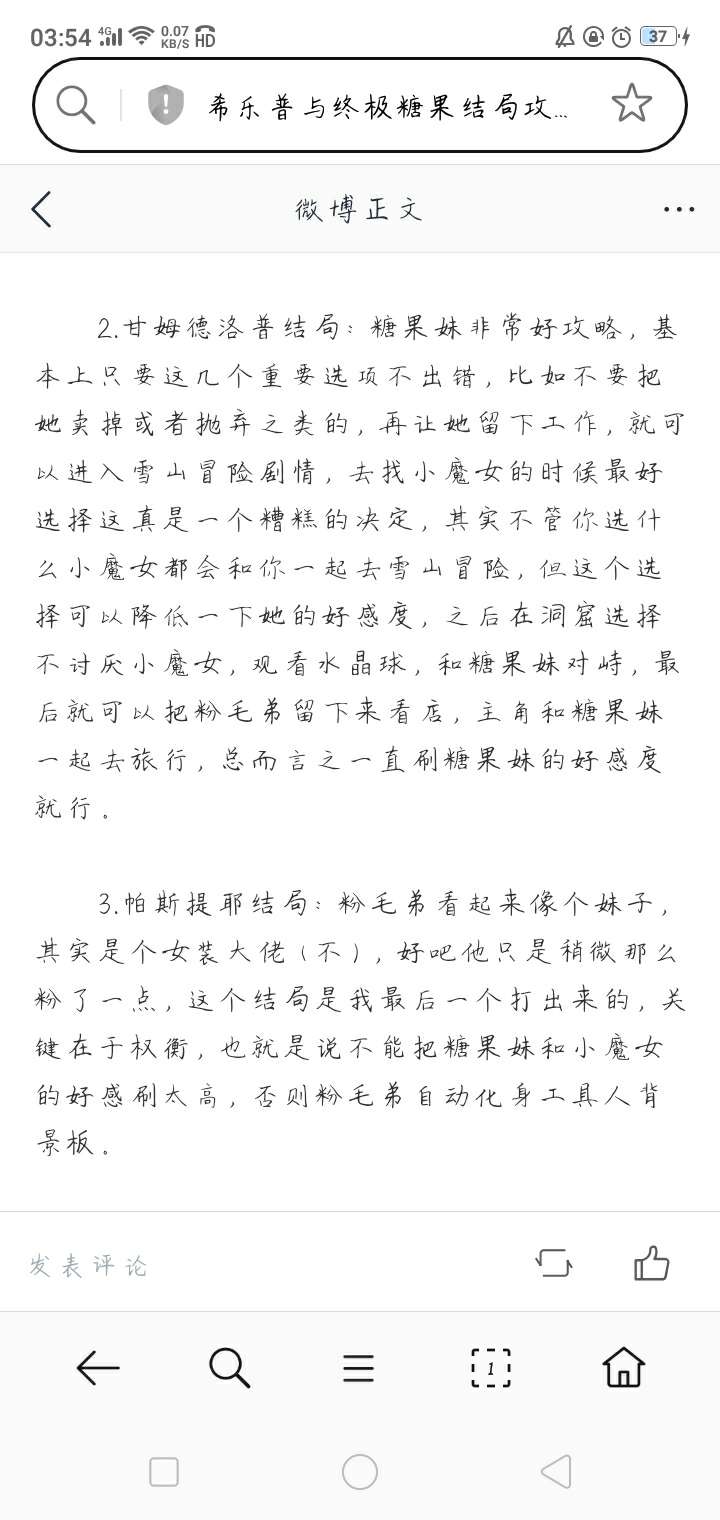 03:54 4G 0.07 KB/S HD 37
希乐普与终极糖果结局攻...
微博正文
2.甘姆德洛普结局：糖果妹非常好攻略，基
本上只要这几个重要选项不出错，比如不要把
她卖掉或者抛弃之类的，再让她留下工作，就可
以进入雪山冒险剧情，去找小魔女的时候最好
选择这真是一个糟糕的决定，其实不管你选什
么小魔女都会和你一起去雪山冒险，但这个选
择可以降低一下她的好感度，之后在洞窟选择
不讨厌小魔女，观看水晶球，和糖果妹对峙，最
后就可以把粉毛弟留下来看店，主角和糖果妹
一起去旅行，总而言之一直刷糖果妹的好感度
就行。
3.帕斯提耶结局：粉毛弟看起来像个妹子，
其实是个女装大佬（不），好吧他只是稍微那么
粉了一点，这个结局是我最后一个打出来的，关
键在于权衡，也就是说不能把糖果妹和小魔女
的好感刷太高，否则粉毛弟自动化身工具人背
景板。
发表评论
1